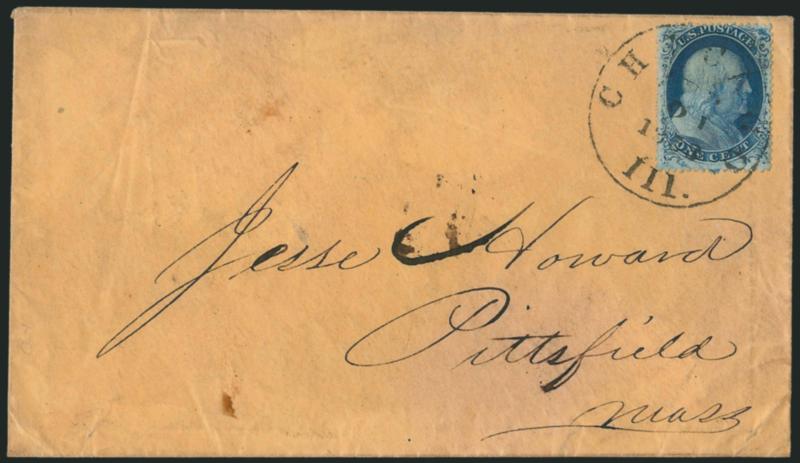 U.S. POSTAGE
ONE CENT
CHICAGO
Ill.
Jesse Howard
Pittsfield
Mass